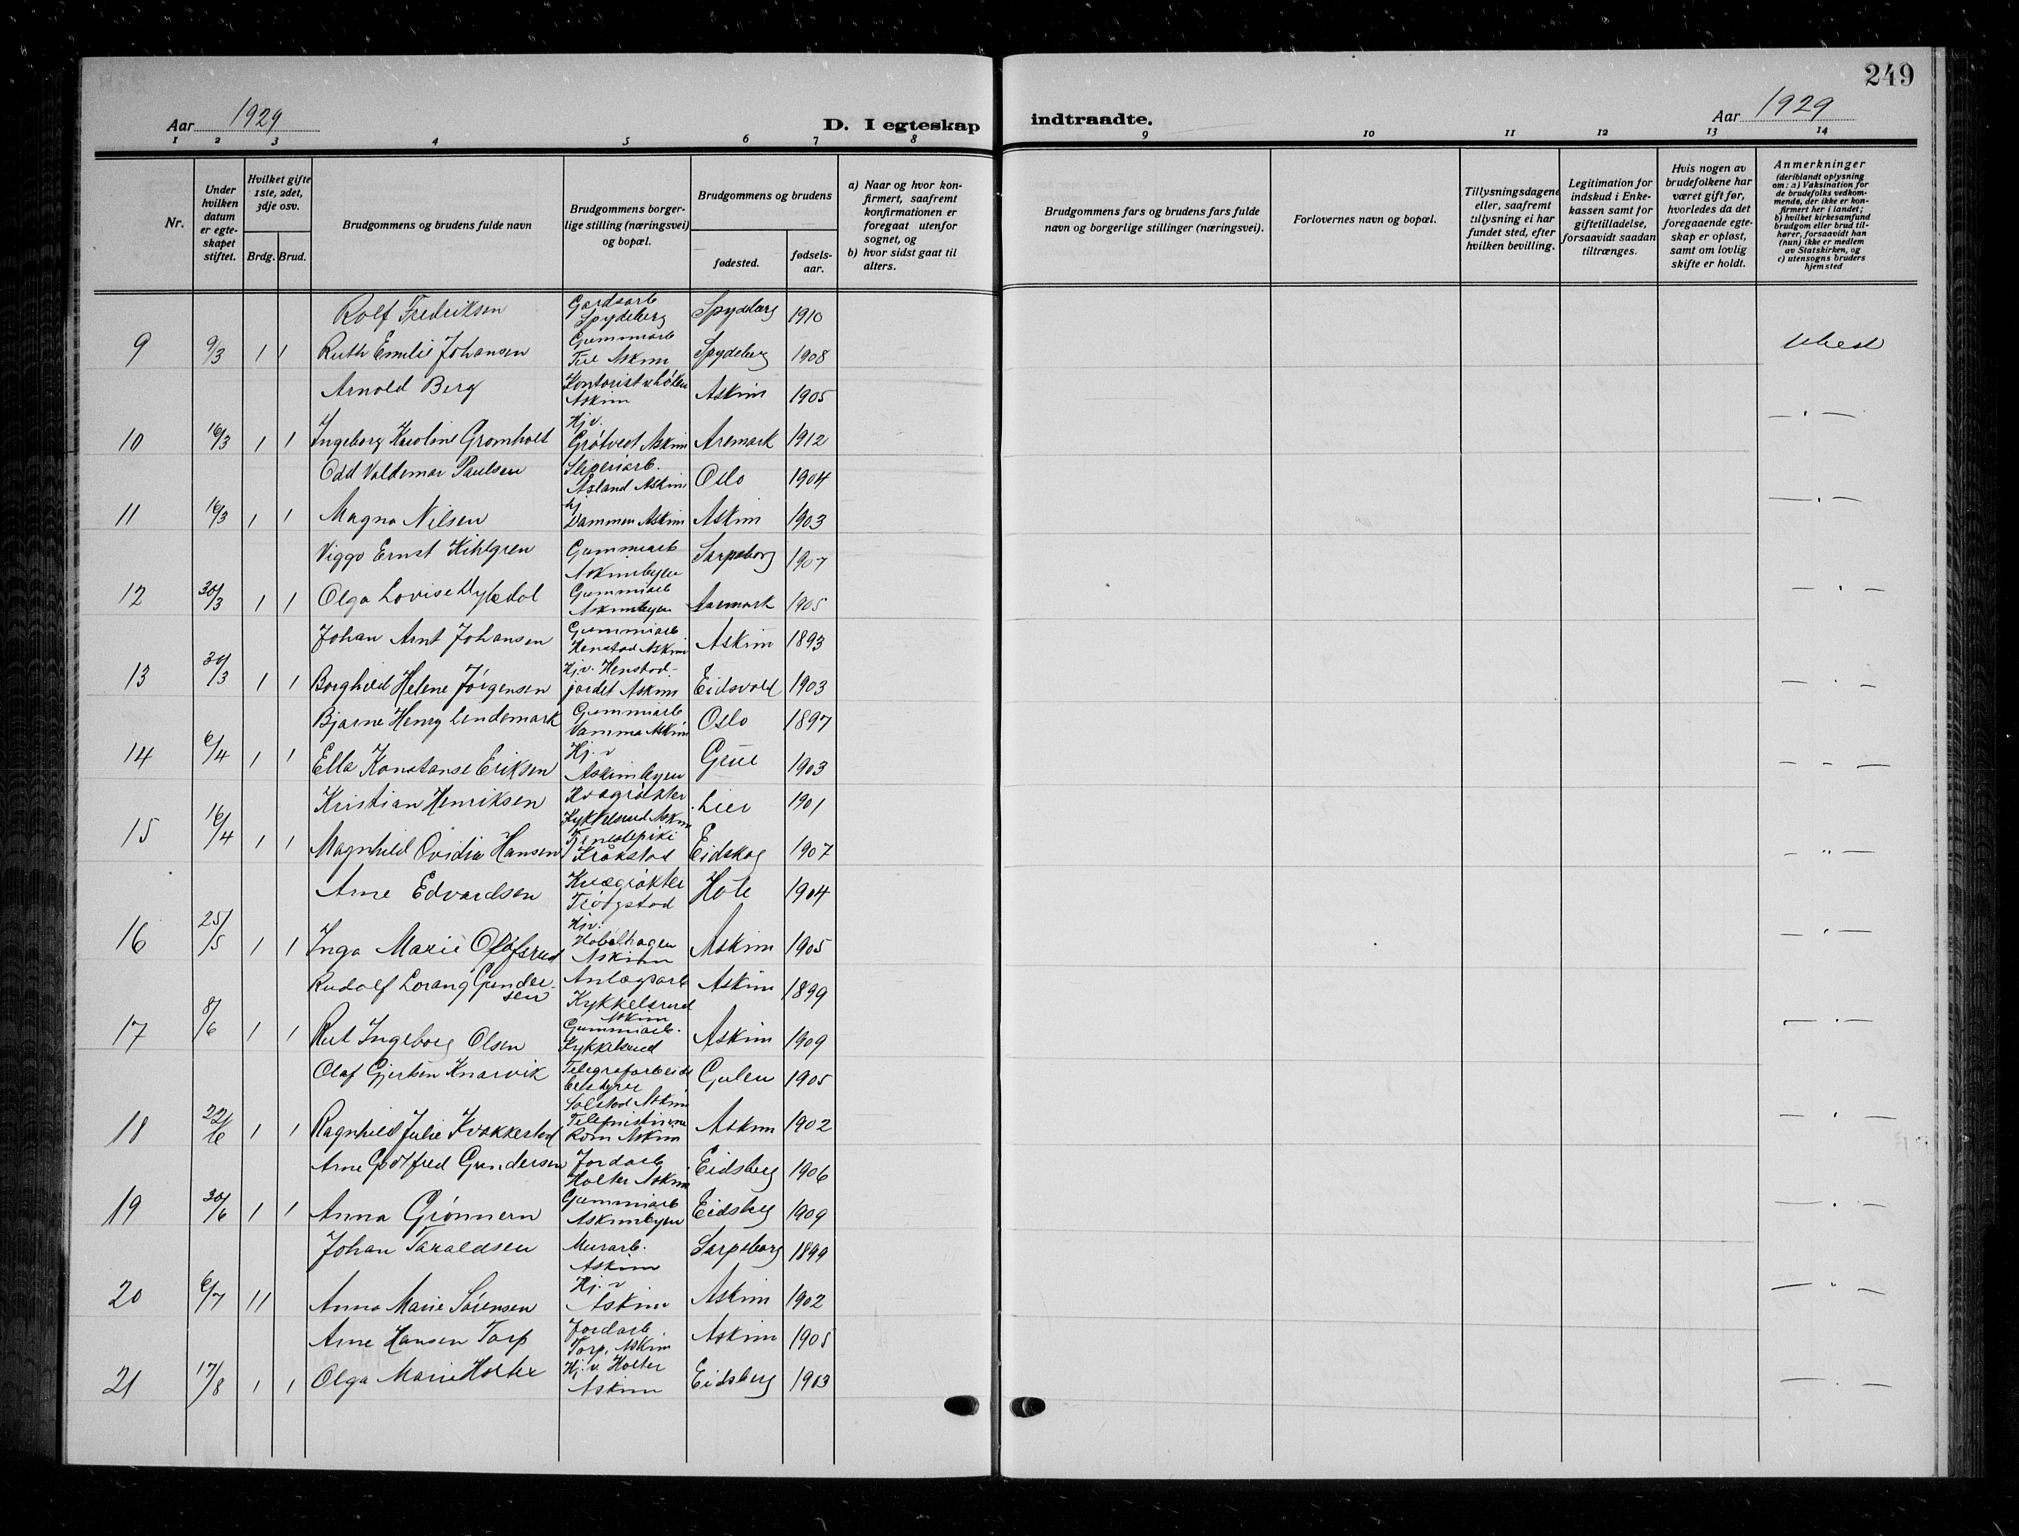 249
Aar 1929
D. I egteskap indtraadte.
Aar 1929
1 2 3 4 5 6 7 8 9 10 11 12 13 14
Nr.
Under hvilken datum er egteskapet stiftet.
Hvilket gifte 1ste, 2det, 3dje osv.
Brdg. Brud.
Brudgommens og brudens fulde navn
Brudgommens borgerlige stilling (næringsvei) og bopæl.
Brudgommens og brudens
fødested.
fødselsaar.
a) Naar og hvor konfirmert, saafremt konfirmationen er foregaat utenfor sognet, og
b) hvor sidst gaat til alters.
Brudgommens fars og brudens fars fulde navn og borgerlige stillinger (næringsvei).
Forlovernes navn og bopæl.
Tillysningsdagene eller, saafremt tillysning ei har fundet sted, efter hvilken bevilling.
Legitimation for indskud i Enkekassen samt for giftetilladelse, forsaavidt saadan tiltrænges.
Hvis nogen av brudefolkene har været gift før, hvorledes da det foregaaende egteskap er opløst, samt om lovlig skifte er holdt.
Anmerkninger (deriblandt oplysning om: a) Vaksination for de brudefolks vedkommende, der ikke er konfirmert her i landet; b) hvilket kirkesamfund brudgom eller brud tilhører, forsaavidt han (hun) ikke er medlem av Statskirken, og c) utensogns bruders hjemsted
Rolf Fredriksen Gardsarb Spydeberg Spydeberg 1910
9 9/3 1 1 Ruth Emilie Johansen Gummiarb Askim Spydeberg 1908 Ubest
Arnold Berg Kontorist Askim Askim 1905
10 16/3 1 1 Ingeborg Karoline Gromholt Hjv. Grøtvedt Askim Aremark 1912 — " —
Odd Valdemar Paulsen Sliperiarb. Åsland Askim Oslo 1904
11 16/3 1 1 Magna Nilsen hj Dammen Askim Askim 1903 — " —
Viggo Ernst Kihlgren Gummiarb Askimbyen Sarpsborg 1907
12 30/3 1 1 Olga Lovise Gummiarb Askimbyen Aremark 1905 — " —
Johan Arnt Johansen Gummiarb Henstad Askim Askim 1893
13 30/3 1 1 Borghild Helene Jørgensen Hj.v. Henstadjordet Askim Eidsvold 1903 — " —
Bjarne Henry Lindemark Gummiarb Vamma Askim Oslo 1897
14 6/4 1 1 Ella Konstanse Eriksen Hj.v Askimbyen Grue 1903 — " —
Kristian Henriksen Kvægrøkter Kykkelsrud Askim Lier 1901
15 16/4 1 1 Magnhild Ovidia Hansen Tjenestepike Kråkstad Eidskog 1907 — " —
Arne Edvardsen Kvægrøkter Trøgstad Hole 1904
16 25/5 1 1 Inga Marie Olofsrud Hjv. Hobølhagen Askim Askim 1905 — " —
Rudolf Lorang Gundersen Anlægsarb Kykkelsrud Askim Askim 1899
17 8/6 1 1 Rut Ingeborg Olsen Gummiarb. Kykkelsrud Askim 1909 — " —
Olaf Gjertsen Knarvik Solstad Askim Gulen 1905
18 22/6 1 1 Ragnhild Julie Kvakkestad Telefonistinne Rom Askim Askim 1902 — " —
Arne Godtfred Gundersen Jordarb Holter Askim Eidsberg 1906
19 30/6 1 1 Anna Grønnern Gummiarb Askimbyen Eidsberg 1909 — " —
Johan Taraldsen Murarb. Askim Sarpsborg 1899
20 6/7 1 1 Anna Marie Sørensen Hj.v Askim Askim 1902 — " —
Arne Hansen Torp Jordarb. Torp, Askim Askim 1905
21 17/8 1 1 Olga Marie Holter Hj.v. Holter Askim Eidsberg 1903 — " —